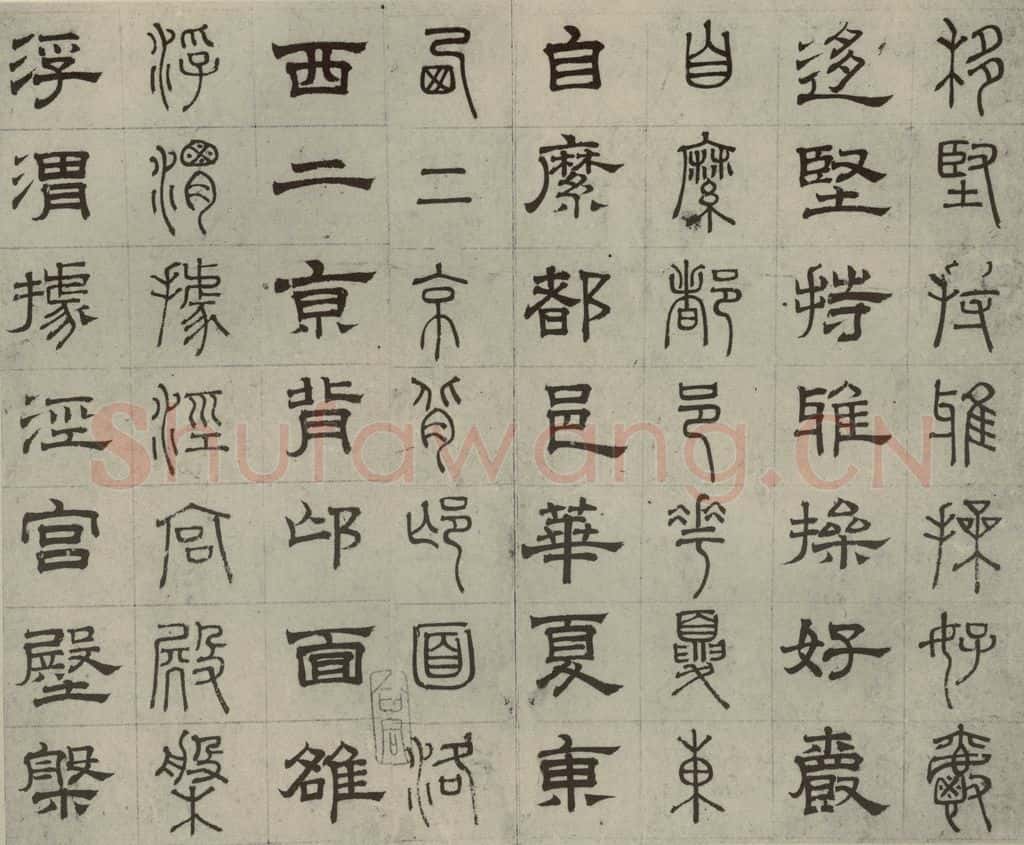 移堅持雅操好爵
迻堅持雅操好爵
自縻都邑華夏東
自縻都邑華夏東
西二京背邙面洛
西二亰背邙面雒
浮渭據涇宮殿槃
浮渭據涇宮壂槃
Shufawang.CN